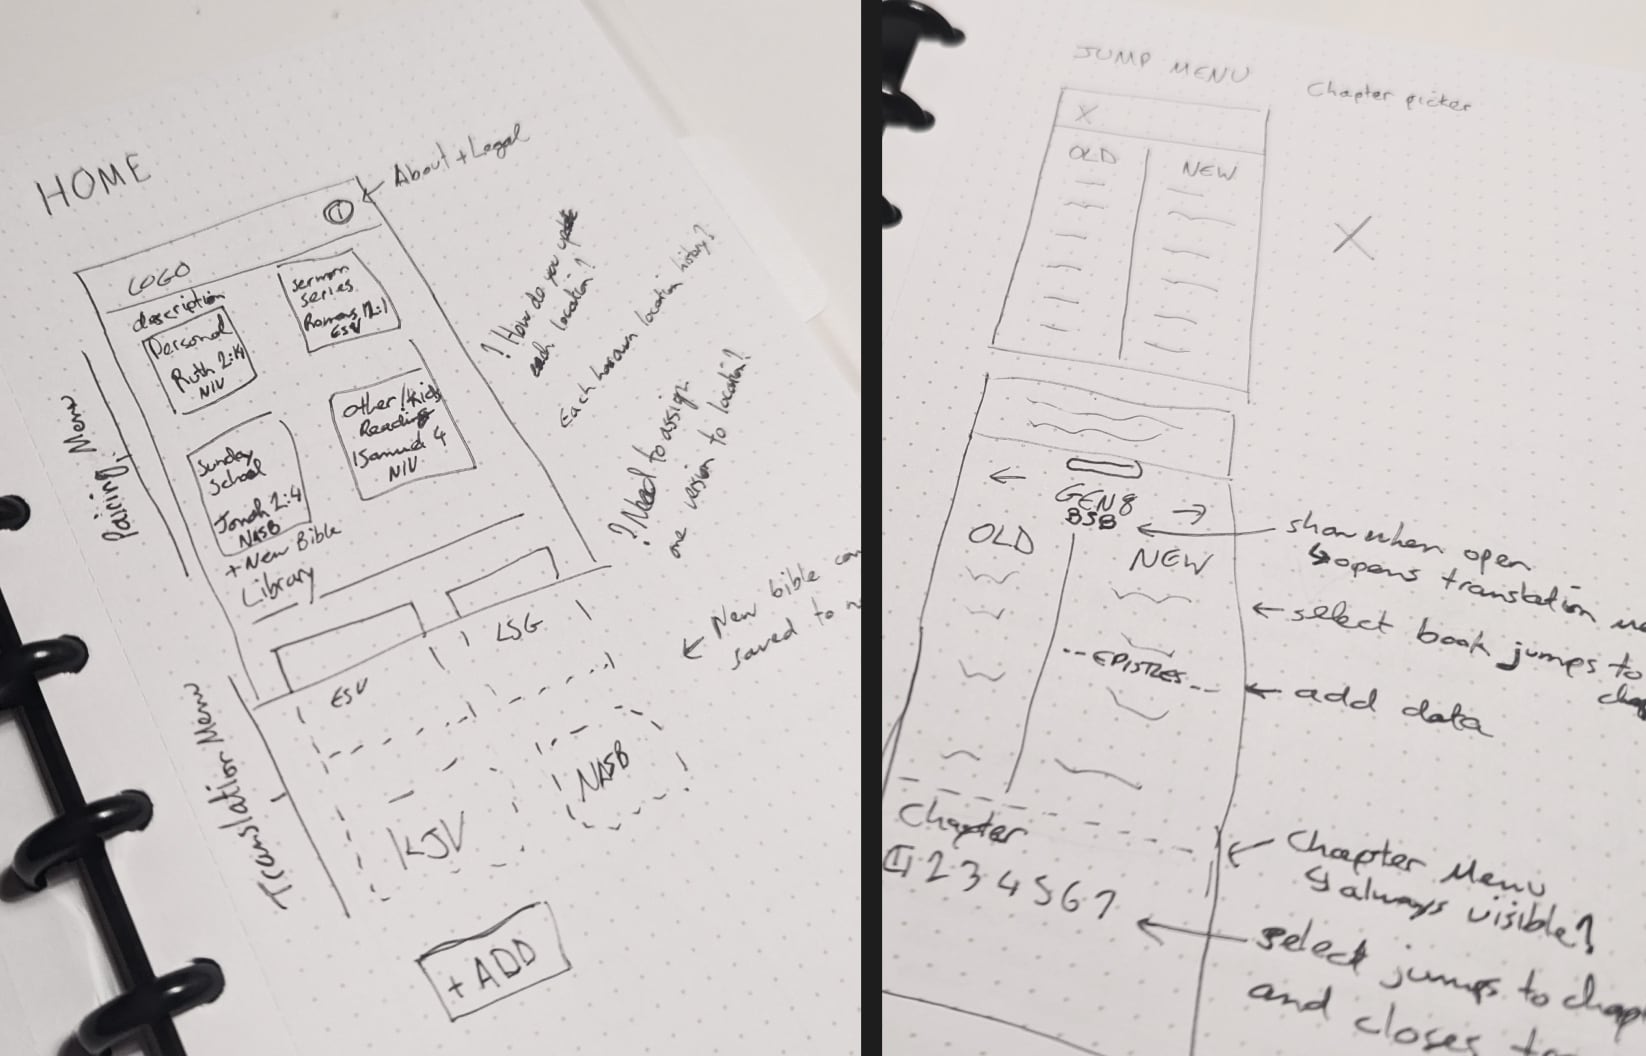 HOME
About + Legal
i
LOGO
description
Personal
Ruth 2:14
NIV
Sermon
series
Romans 12:1
ESV
Sunday
School
Jonah 2:4
NASB
other/kids
Reading
1Samuel 4
NIV
+ New Bible
Library
Pairing Menu
? How do you update
each location?
Each has own location history?
? Need to assign
one version to location?
New bible
saved to
ESV
LSG
KJV
NASB
Translation Menu
+ ADD
JUMP MENU
Chapter picker
X
OLD
NEW
X
GEN 8
BSB
OLD
NEW
--EPISTLES--
show when open
↳opens translation
select book jumps to
add data
Chapter
1 2 3 4 5 6 7
Chapter Menu
↳ always visible?
select jumps to
and closes